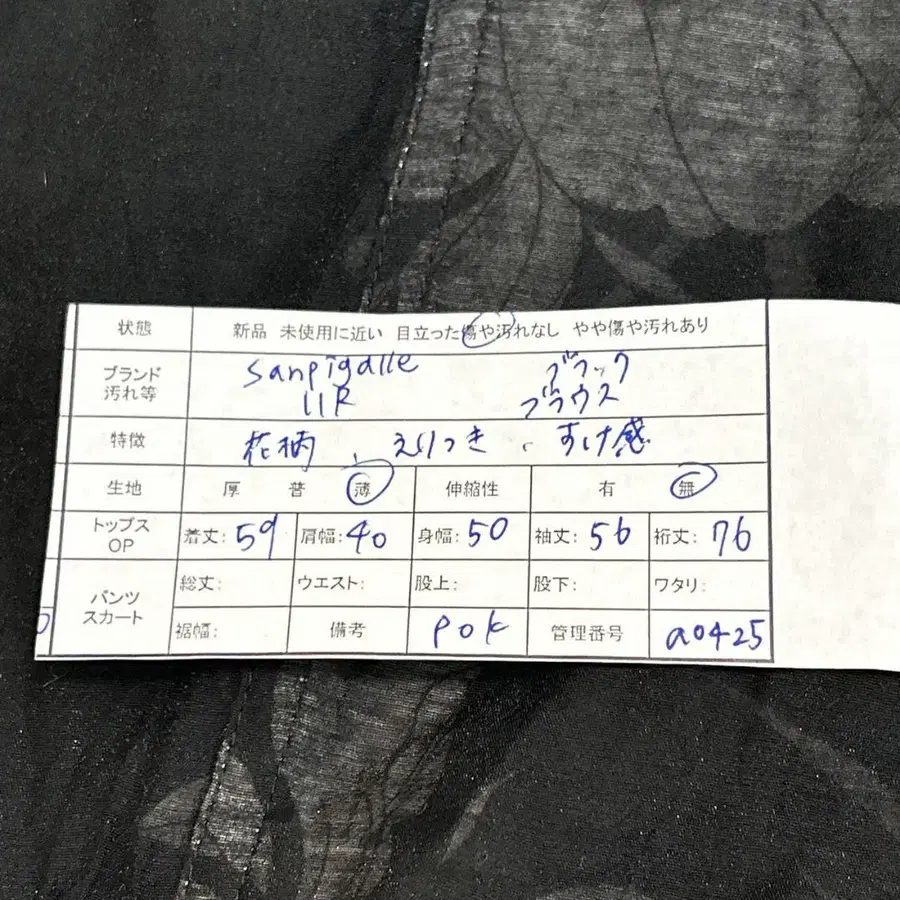 状態 新品 未使用に近い 目立った傷や汚れなし やや傷や汚れあり
ブランド 汚れ等 sanpigalle ブラック
11R ブラウス
特徴 花柄、えりつき、すけ感
生地 厚 普 薄 伸縮性 有 無
トップス OP 着丈: 59 肩幅: 40 身幅: 50 袖丈: 56 裄丈: 76
パンツ スカート 総丈: ウエスト: 股上: 股下: ワタリ:
裾幅: 備考 POK 管理番号 a0425